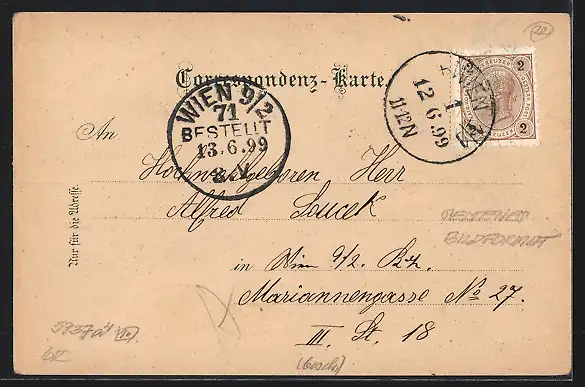 Correspondenz-Karte
2
KREUZER
2 2
WIEN
1
12 6.99
11-12N
WIEN 9/2
71
BESTELLT
13.6.99
8.V
An
Hochwohlgeboren Herr
Alfred Loucek
in Wien 9/2. Bz.
Mariannengasse No 27.
III. St. 18
Nur für die Adresse.
BILDFORMAT
(besch)